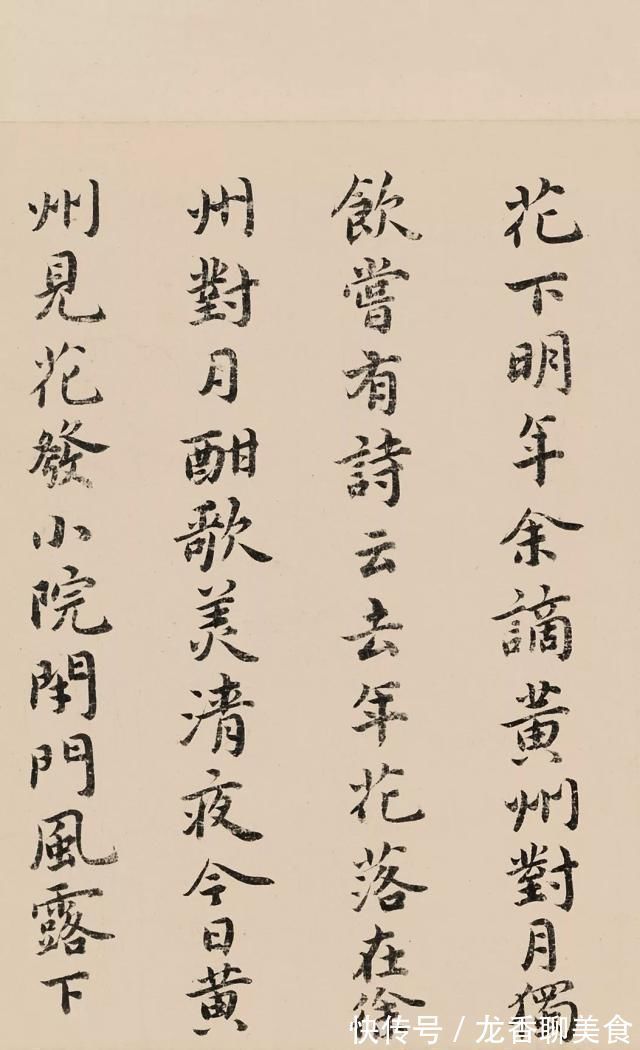 花下明年余謫黄州對月獨
飲嘗有詩云去年花落在徐
州對月酣歌美清夜今日黄
州見花發小院閉門風露下
快传号／龙香聊美食